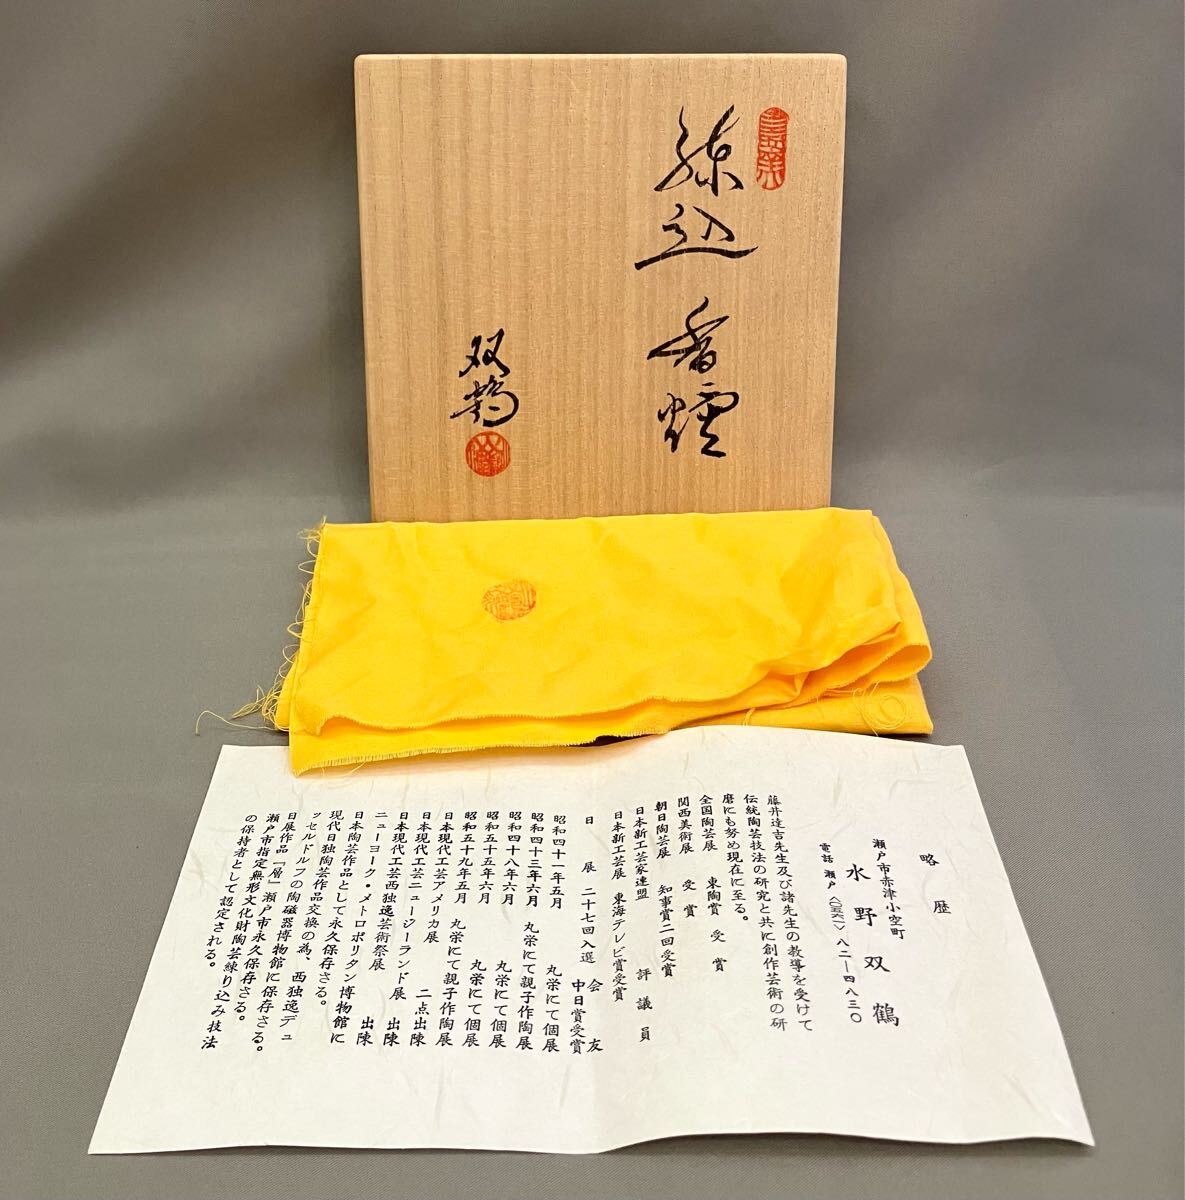 練込香爐
双鶴
略歴
瀬戸市赤津小空町
水野双鶴
電話 瀬戸〈〇五六一〉八二ー四八三〇
藤井達吉先生及び諸先生の教導を受けて
伝統陶芸技法の研究と共に創作芸術の研
磨にも努め現在に至る。
全国陶芸展 東陶賞 受賞
関西美術展 受賞
朝日陶芸展 知事賞二回受賞
日本新工芸家連盟 評議員
日本新工芸展 東海テレビ賞受賞
日展 二十七回入選 会友
中日賞受賞
昭和四十一年五月 丸栄にて個展
昭和四十三年六月 丸栄にて親子作陶展
昭和四十八年六月 丸栄にて個展
昭和五十五年六月 丸栄にて個展
昭和五十九年五月 丸栄にて親子作陶展
日本現代工芸アメリカ展 二点出陳
日本現代工芸ニュージーランド展 出陳
日本現代工芸西独逸芸術祭展 出陳
ニューヨーク・メトロポリタン博物館に
日本陶芸作品として永久保存さる。
現代日独陶芸作品交換の為、西独逸デュ
ッセルドルフの陶磁器博物館に保存さる。
日展作品「層」瀬戸市永久保存さる。
瀬戸市指定無形文化財陶芸練り込み技法
の保持者として認定される。